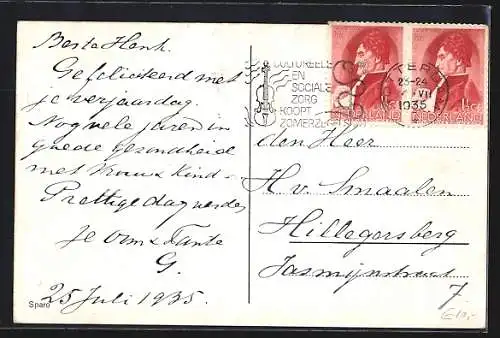 Beste Henk.
Gefeliciteerd met
je verjaardag.
Nog vele jaren in
goede gezondheid
met Vrouw & Kind.
Prettige dag verder
je Oom & Tante
G.
25 Juli 1935.
Sparo
CULTUREELE
EN
SOCIALE
ZORG
KOOPT
ZOMERZEGELS
23-24
VII
1935
NEDERLAND
NEDERLAND
den Heer
H. v. Smaalen
Hillegersberg
Jasmijnstraat
7.